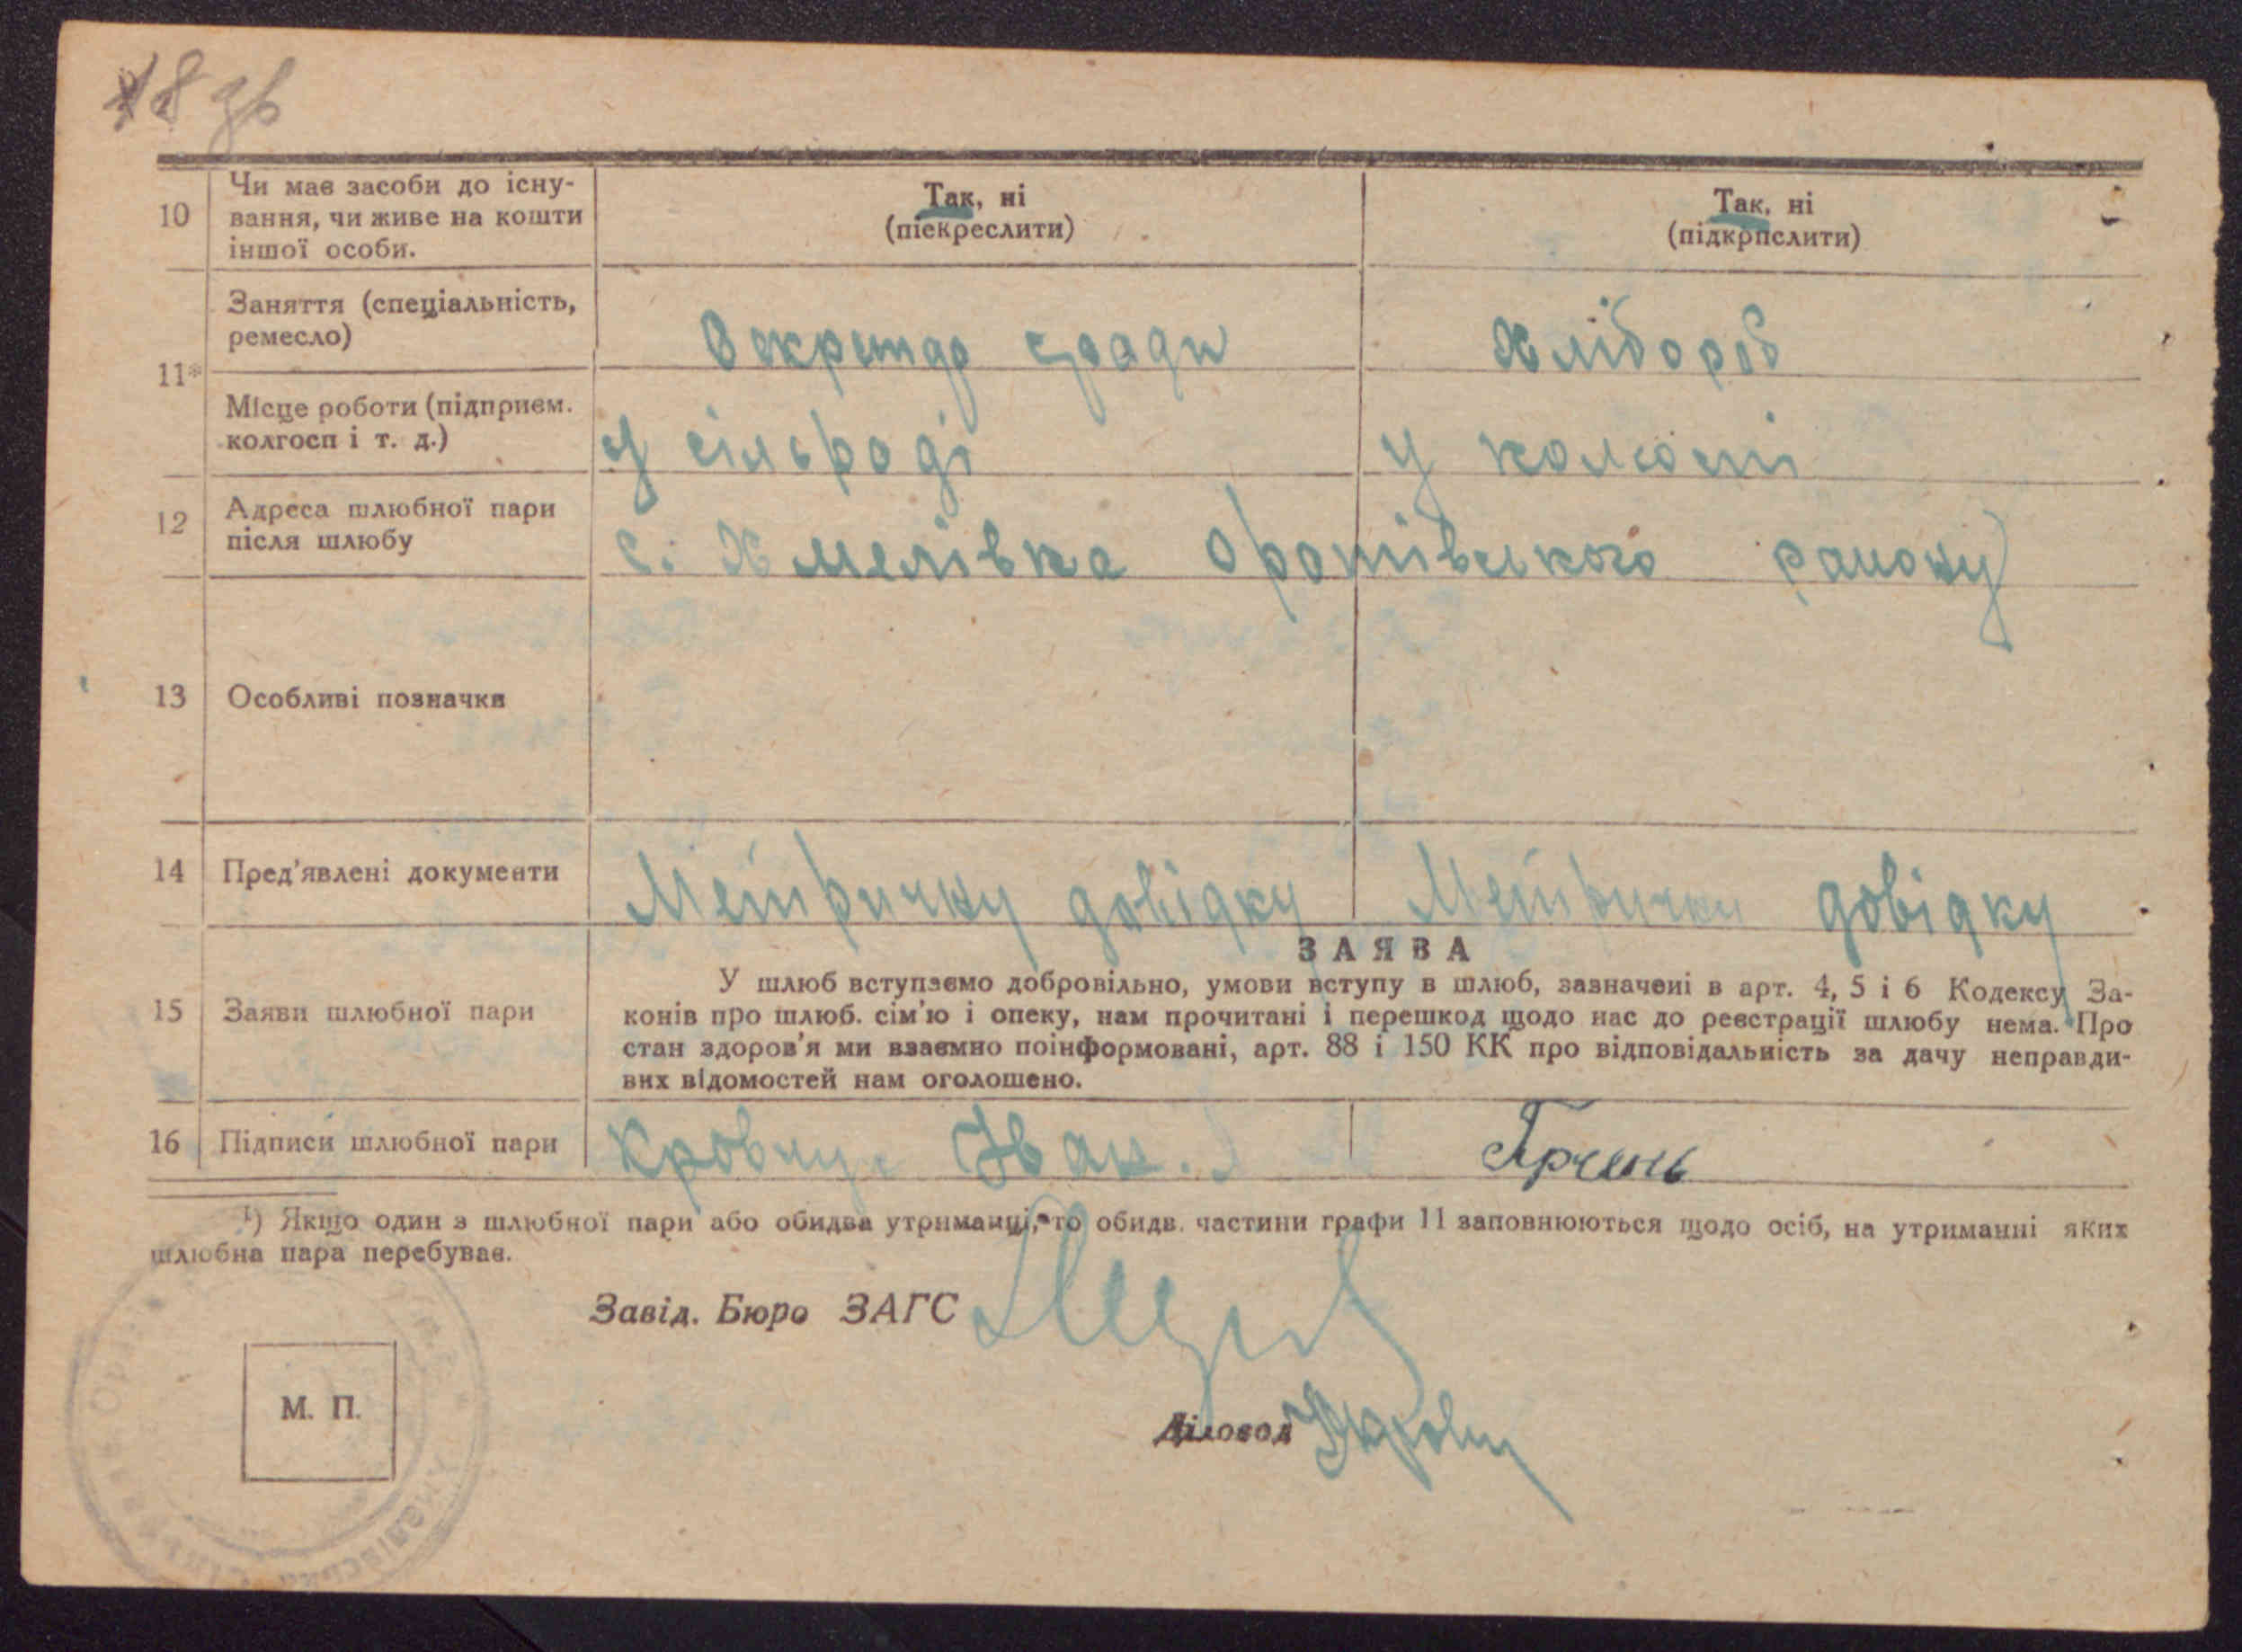 18 зв
10 Чи має засоби до існу-
вання, чи живе на кошти
іншої особи.
Так, ні
(піекреслити)
Так, ні
(підкрпслити)
11*
Заняття (спеціальність,
ремесло)
Секретар сради
Хлібороб
Місце роботи (підприєм.
колгосп і т. д.)
у сільраді
у колгоспі
12 Адреса шлюбної пари
після шлюбу
с. Хмелівка Оратівського району
13 Особливі позначки
14 Пред'явлені документи
Метричну довідку
Метричну довідку
ЗАЯВА
15 Заяви шлюбної пари
У шлюб вступаємо добровільно, умови вступу в шлюб, зазначені в арт. 4, 5 і 6 Кодексу За-
конів про шлюб. сім'ю і опеку, нам прочитані і перешкод щодо нас до реєстрації шлюбу нема. Про
стан здоров'я ми взаємно поінформовані, арт. 88 і 150 КК про відповідальність за дачу неправди-
вих відомостей нам оголошено.
16 Підписи шлюбної пари
Іван.
¹) Якщо один з шлюбної пари або обидва утриманці, то обидв. частини графи 11 заповнюються щодо осіб, на утриманні яких
шлюбна пара перебуває.
Завід. Бюро ЗАГС
М. П.
Діловод